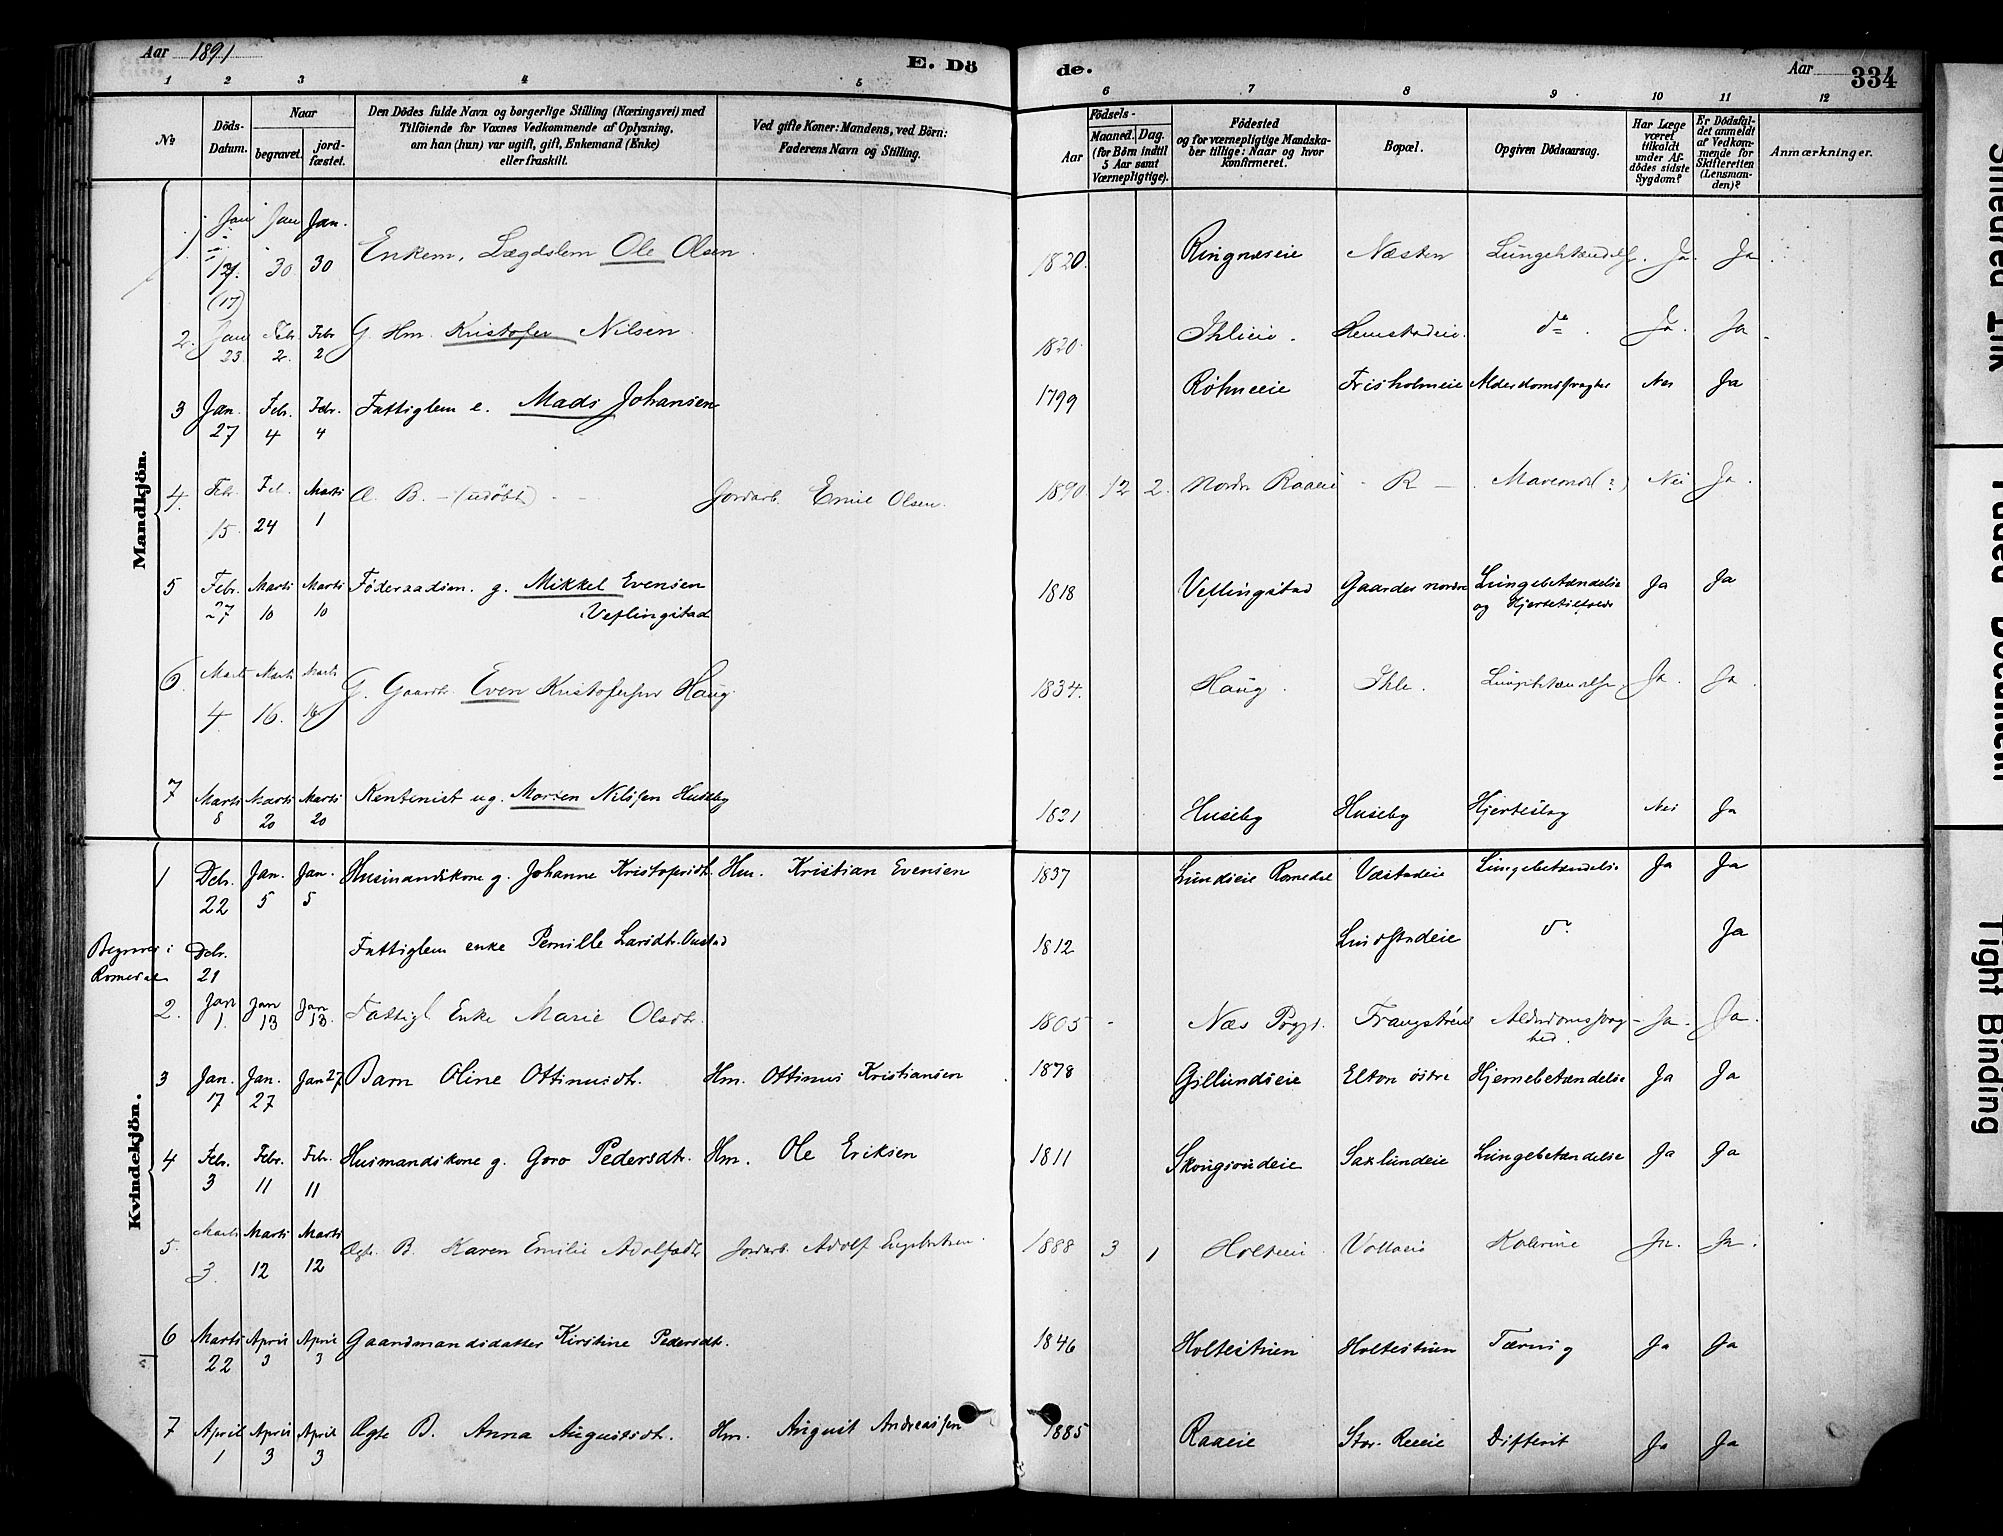 Aar 1891
E. Dö
de.
Aar
334
1 2 3 4 5 6 7 8 9 10 11 12
№
Döds-Datum.
Naar
begravet.
jord-fæstet.
Den Dödes fulde Navn og borgerlige Stilling (Næringsvei) med
Tilföiende for Voxnes Vedkommende af Oplysning,
om han (hun) var ugift, gift, Enkemand (Enke)
eller fraskilt.
Ved gifte Koner: Mandens, ved Börn:
Faderens Navn og Stilling.
Födsels-
Aar
Maaned. Dag.
(for Börn indtil
5 Aar samt
Værnepligtige).
Födested
og for værnepligtige Mandska-
ber tillige: Naar og hvor
konfirmeret.
Bopæl.
Opgiven Dödsaarsag.
Har Læge
været
tilkaldt
under Af-
dödes sidste
Sygdom?
Er Dödsfal-
det anmeldt
af Vedkom-
mende for
Skifteretten
(Lensman-
den)?
Anmærkninger.
Mandkjön.
1. Jan (17) Jan 30 Jan. 30 Enkem. Lægdslem Ole Olsen 1820. Ringnæseie Næsten Lungebetændelse. Ja. Ja
2. Jan 23 Feb. 2. Febr 2 G. Hm. Kristofer Nilsen 1820. Ihleie. Hemstadeie. do. Ja. Ja
3 Jan. 27 Febr. 4 Febr. 4 Fattiglem e. Mads Johansen 1799 Frisholmeie Nei Ja
4. Febr. 15. Feb. 24 Marts 1 Æ. B. - (udøbt) - - Jordarb. Emil Olsen. 1890 12 2. Nordre Raaeie - R - Nei Ja.
5 Febr. 27 Marts 10 Marts 10 Føderaadsm. g. Mikkel Evensen
Veflingstad 1818 Veflingstad Gaarder nordre Lungebetændelse
og Ja Ja
6. Marts 4. Marts 16. Marts 16 G. Gaardbr. Even Kristofersen Haug. 1834. Haug. Ihle. Lungebetændelse Ja. Ja.
7 Marts 8 Marts 20 Marts 20 Rentenist ug. Morten Nilssen Huseby 1821 Huseby Huseby Hjerteslag Nei Ja
Kvindekjön.
1 Dcbr. 22 Jan. 5 Jan. 5 Husmandskone g. Johanne Kristofersdt. Hm. Kristian Evensen 1837 Lundseie Romedal Vestadeie Lungebetændelse Ja Ja
Begravet i
Romedal Dcbr. 21 Fattiglem enke Pernille Larsdtr. 1812 do Ja
2. Jan 1. Jan 13 Jan 13. Fattigl. Enke Marie Olsdtr. 1805 Næs Alderdomssvag-
hed. Ja. Ja.
3 Jan. 17 Jan. 27 Jan 27 Barn Oline Ottinusdtr. Hm. Ottinus Kristiansen 1878 Gillundseie Elton østre Hjernebetændelse Ja Ja
4 Febr. 3 Febr. 11 Febr. 11 Husmandskone g. Goro Pedersdtr. Hm. Ole Eriksen 1811 Skougsrudeie Saxlundeie Lungebetændelse Ja Ja
5. Marts 3. Marts 12 Marts 12 Ægte B. Karen Emilie Adolfsdtr Jordarb. Adolf Engebretsen. 1888 3 1 Holteeie. Kolerine Ja. Ja.
6 Marts 22 April 3 April 3 Gaardmandsdatter Kirstine Pedersdtr. 1846 Holtestuen Holtestuen Tæring Ja Ja
7 April 1 April 3 April 3 Ægte B. Anna Augustsdtr. Hm. August Andreassen 1885 Raaeie Difterit Ja Ja
Smeared Ink
Faded Document
Tight Binding